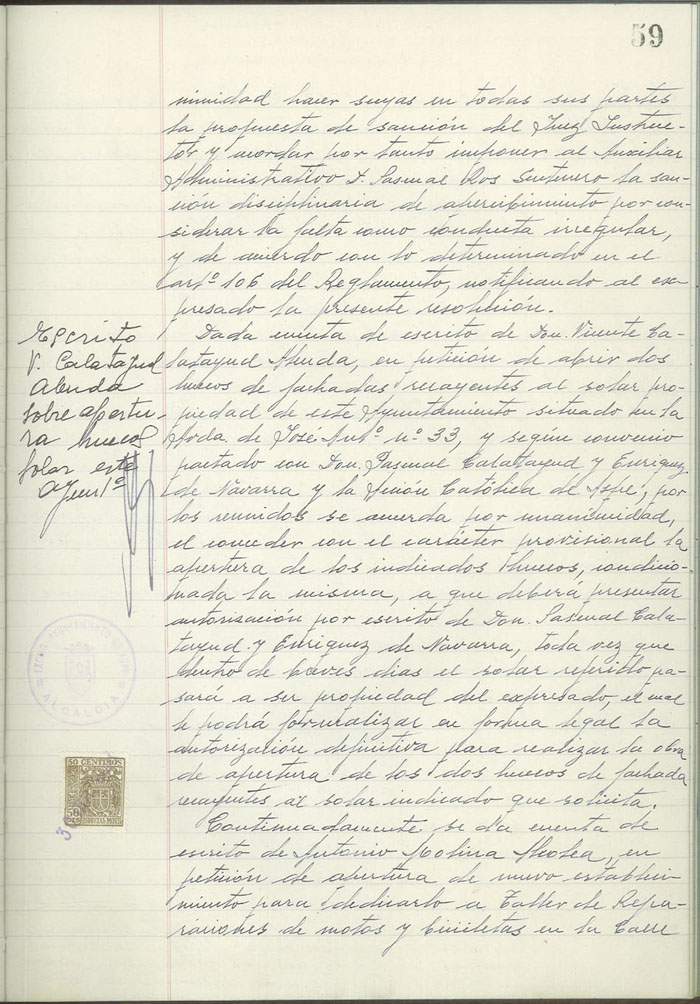 59
nimidad hacer suyas en todas sus partes
la propuesta de sanción del Juez Instruc-
tor y acordar por tanto imponer al Auxiliar
Administrativo D. Pascual Ros Sempere la san-
ción disciplinaria de apercibimiento por con-
siderar la falta como conducta irregular,
y de acuerdo con lo determinado en el
artº 106 del Reglamento, notificando al ex-
presado la presente resolución.
Escrito
V. Calatayud
Alenda
sobre apertu-
ra huecos
solar este
Ayuntº
Dada cuenta de escrito de Don Vicente Ca-
latayud Alenda, en petición de abrir dos
huecos de fachadas recayentes al solar pro-
piedad de este Ayuntamiento situado en la
Avda. de José Antº nº 33, y según convenio
pactado con Don Pascual Calatayud y Enriquez
de Navarra y la Acción Católica de Aspe, por
los reunidos se acuerda por unanimidad,
el conceder con el carácter provisional la
apertura de los indicados huecos, condicio-
nada la misma, a que deberá presentar
autorización por escrito de Don Pascual Cala-
tayud y Enriquez de Navarra, toda vez que
dentro de breves dias el solar referido pa-
sará a ser propiedad del expresado, el cual
le podrá formalizar en forma legal la
autorización definitiva para realizar la obra
de apertura de los dos huecos de fachada
recayentes al solar indicado que solicita.
Continuadamente se da cuenta de
escrito de Antonio Molina, en
petición de apertura de nuevo estableci-
miento para dedicarlo a Taller de Repa-
raciones de motos y bicicletas en la Calle
ALCALDIA
50 CENTIMOS